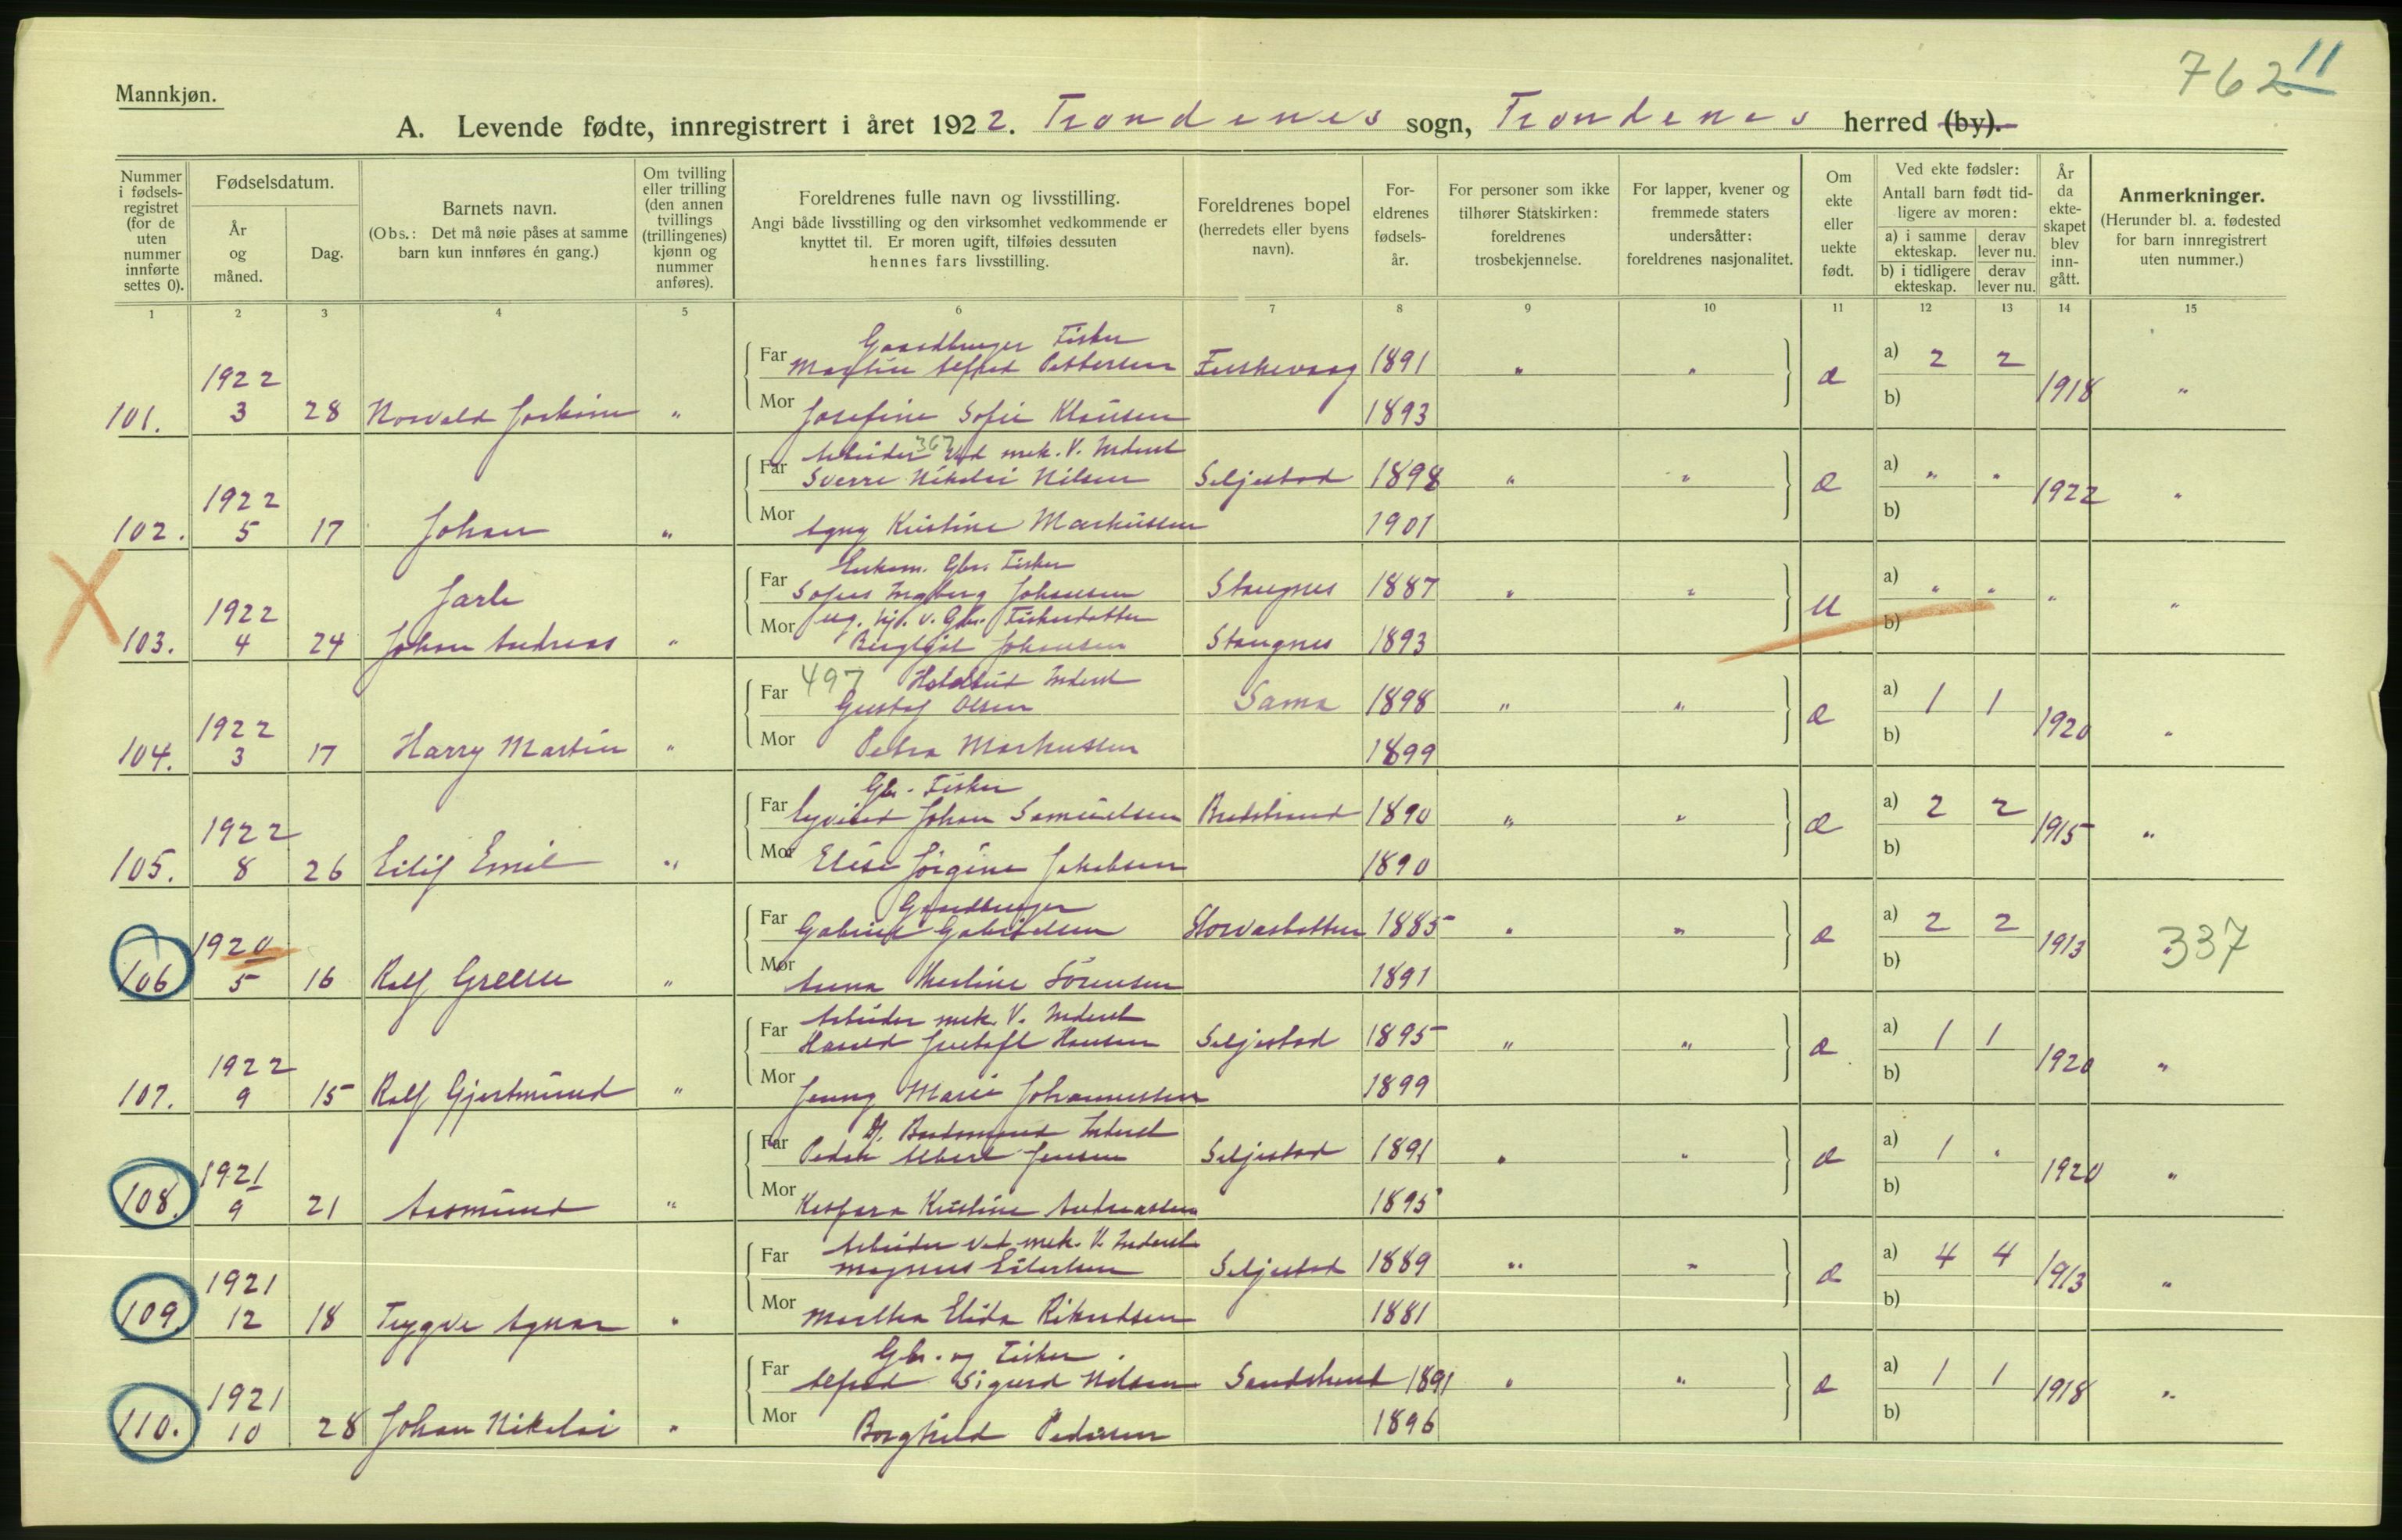 762 11
Mannkjøn.
A. Levende fødte, innregistrert i året 1922. Trondenes sogn, Trondenes herred (by).
Nummer i fødsels-registret (for de uten nummer innførte settes 0).
Fødselsdatum.
År og måned.
Dag.
Barnets navn.
(Obs.: Det må nøie påses at samme barn kun innføres én gang.)
Om tvilling eller trilling (den annen tvillings (trillingenes) kjønn og nummer anføres).
Foreldrenes fulle navn og livsstilling.
Angi både livsstilling og den virksomhet vedkommende er knyttet til. Er moren ugift, tilføies dessuten hennes fars livsstilling.
Foreldrenes bopel (herredets eller byens navn).
For-eldrenes fødsels-år.
For personer som ikke tilhører Statskirken: foreldrenes trosbekjennelse.
For lapper, kvener og fremmede staters undersåtter: foreldrenes nasjonalitet.
Om ekte eller uekte født.
Ved ekte fødsler:
Antall barn født tid-ligere av moren:
a) i samme ekteskap. derav lever nu.
b) i tidligere ekteskap. derav lever nu.
År da ekte-skapet blev inn-gått.
Anmerkninger.
(Herunder bl. a. fødested for barn innregistrert uten nummer.)
1 2 3 4 5 6 7 8 9 10 11 12 13 14 15
Gaardbruger Fisker
1922 Far Martin Alfred Pettersen 1891 " " æ a) 2 2 1918 "
101. 3 28 Norvald Joakim " Mor Josefine Sofie Klausen 1893 b)
Arbeider 367 ved mek. V. Inderst
1922 Far Sverre Nikolai Nilsen Seljestad 1898 " " æ a) " " 1922 "
102. 5 17 Johan " Mor Agny Kristine Markussen 1901 b)
Enkem. Gbr. Fisker
1922 Jarle Far Sofus Ingberg Johansen Stangnes 1887 " " u a) " " " "
ug. hj. v. Gbr. Fiskerdatter
103. 4 24 Johan Andreas " Mor Bergljot Johansen Stangnes 1893 b)
497 Inderst
1922 Far Gustav Olsen Sama 1898 " " æ a) 1 1 1920 "
104. 3 17 Harry Martin " Mor Petra Markussen 1899 b)
Gbr. Fisker
1922 Far Eyvind Johan Samuelsen Bredstrand 1890 " " æ a) 2 2 1915 "
105. 8 26 Eilif Emil " Mor Elise Jörgine Jakobsen 1890 b)
Gaardbruger
1920 Far Gabriel Gabrielsen Storvasbotten 1885 " " æ a) 2 2 1913 337
106 5 16 Rolf " Mor Anna Sörensen 1891 b)
Arbeider mek. V. Inderst
1922 Far Harald Hansen Seljestad 1895 " " æ a) 1 1 1920 "
107. 9 15 Rolf Gjertmund " Mor Jenny Marie Johannessen 1899 b)
Inderst
1921 Far Peder Albert Jensen Seljestad 1891 " " æ a) 1 " 1920 "
108. 9 21 Aasmund " Mor Kaspara Kristine Andreassen 1895 b)
Arbeider ved mek. V. Inderst
1921 Far Magnus Eilertsen Seljestad 1889 " " æ a) 4 4 1913 "
109. 12 18 Trygve Agnar " Mor Martha Elida Rikardsen 1881 b)
Gbr. og Fisker.
1921 Far Alfred Sigurd Nilsen Sandstrand 1891 " " æ a) 1 1 1918 "
110. 10 28 Johan Nikolai " Mor Borghild Pedersen 1896 b)